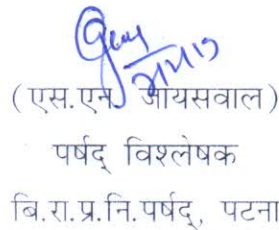 (एस.एन. जायसवाल)
पर्षद् विश्लेषक
बि.रा.प्र.नि.पर्षद्, पटना